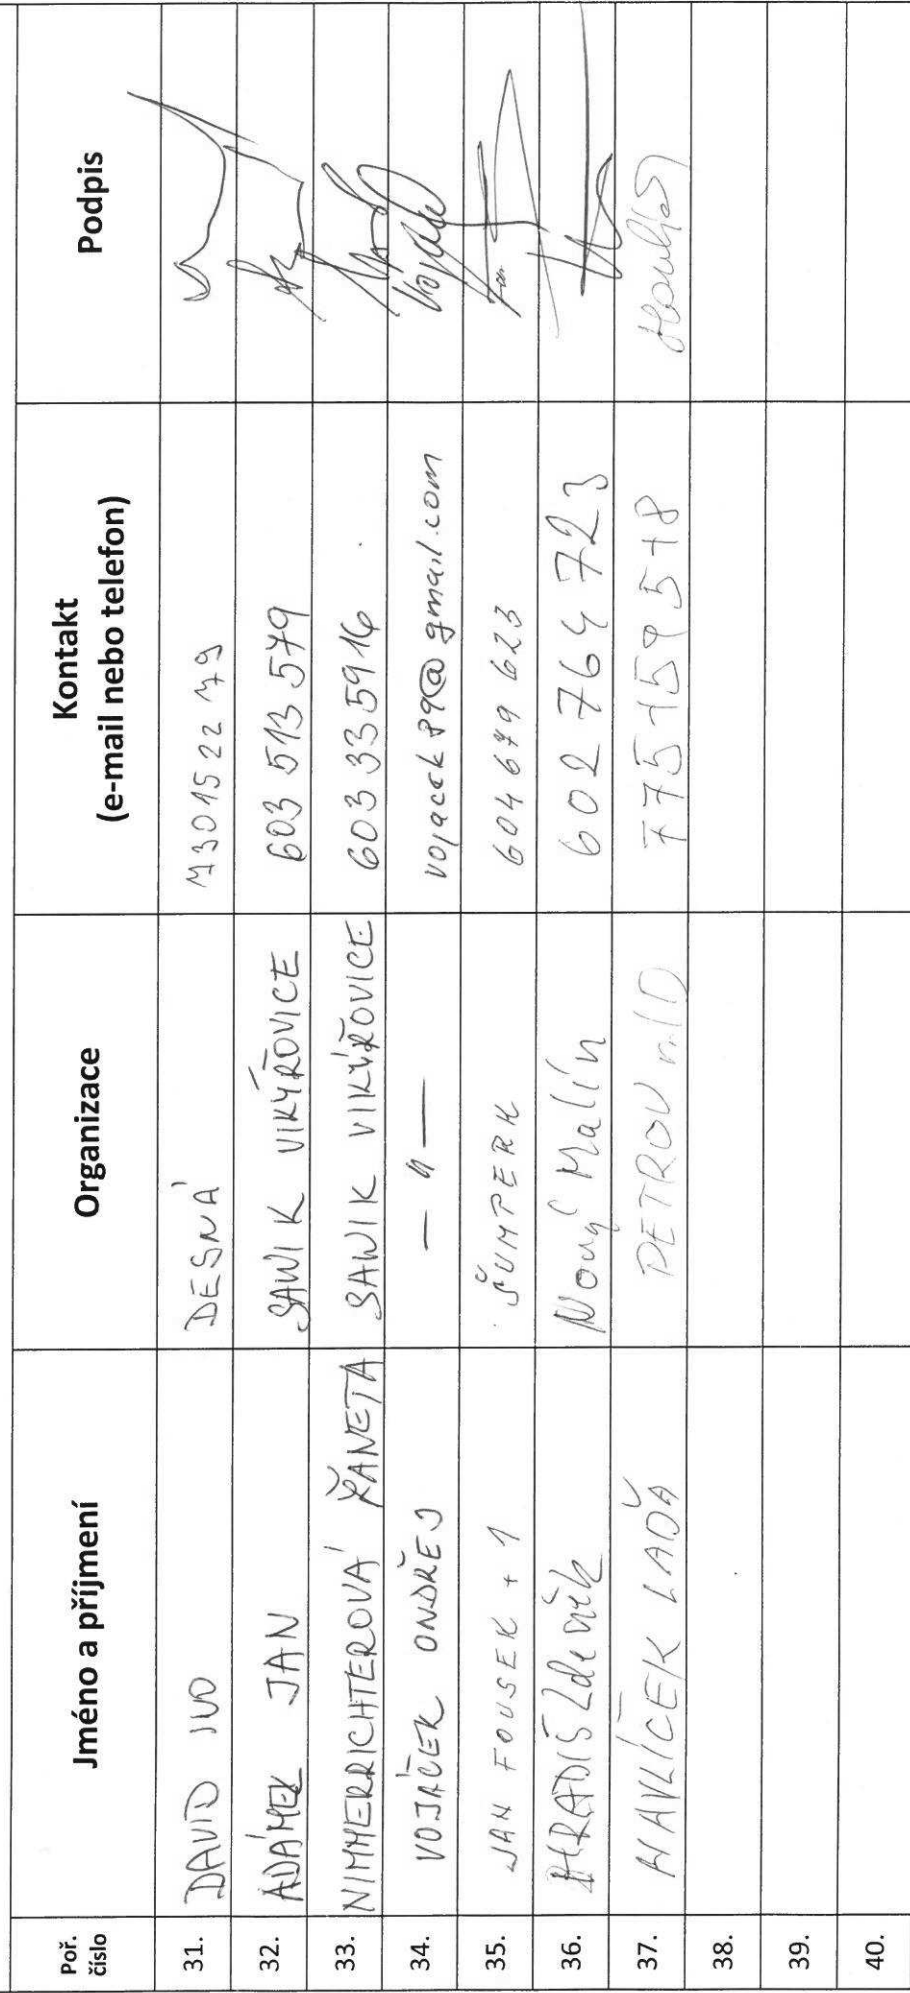 Poř. číslo Jméno a příjmení Organizace Kontakt (e-mail nebo telefon) Podpis
31. DAVID IVO DESNÁ 730152279
32. ADÁMEK JAN SAWIK VIKÝŘOVICE 603 513 579
33. NIMMERRICHTEROVÁ ŽANETA SAWIK VIKÝŘOVICE 603 335916
34. VOJÁČEK ONDŘEJ — 〃 — vojacek89@gmail.com
35. JAN FOUSEK + 1 ŠUMPERK 604 679 623
36. HRADIŠ Zdeněk Nový Malín 602 764 723
37. HAVLÍČEK LAĎA PETROV n/D
38.
39.
40.